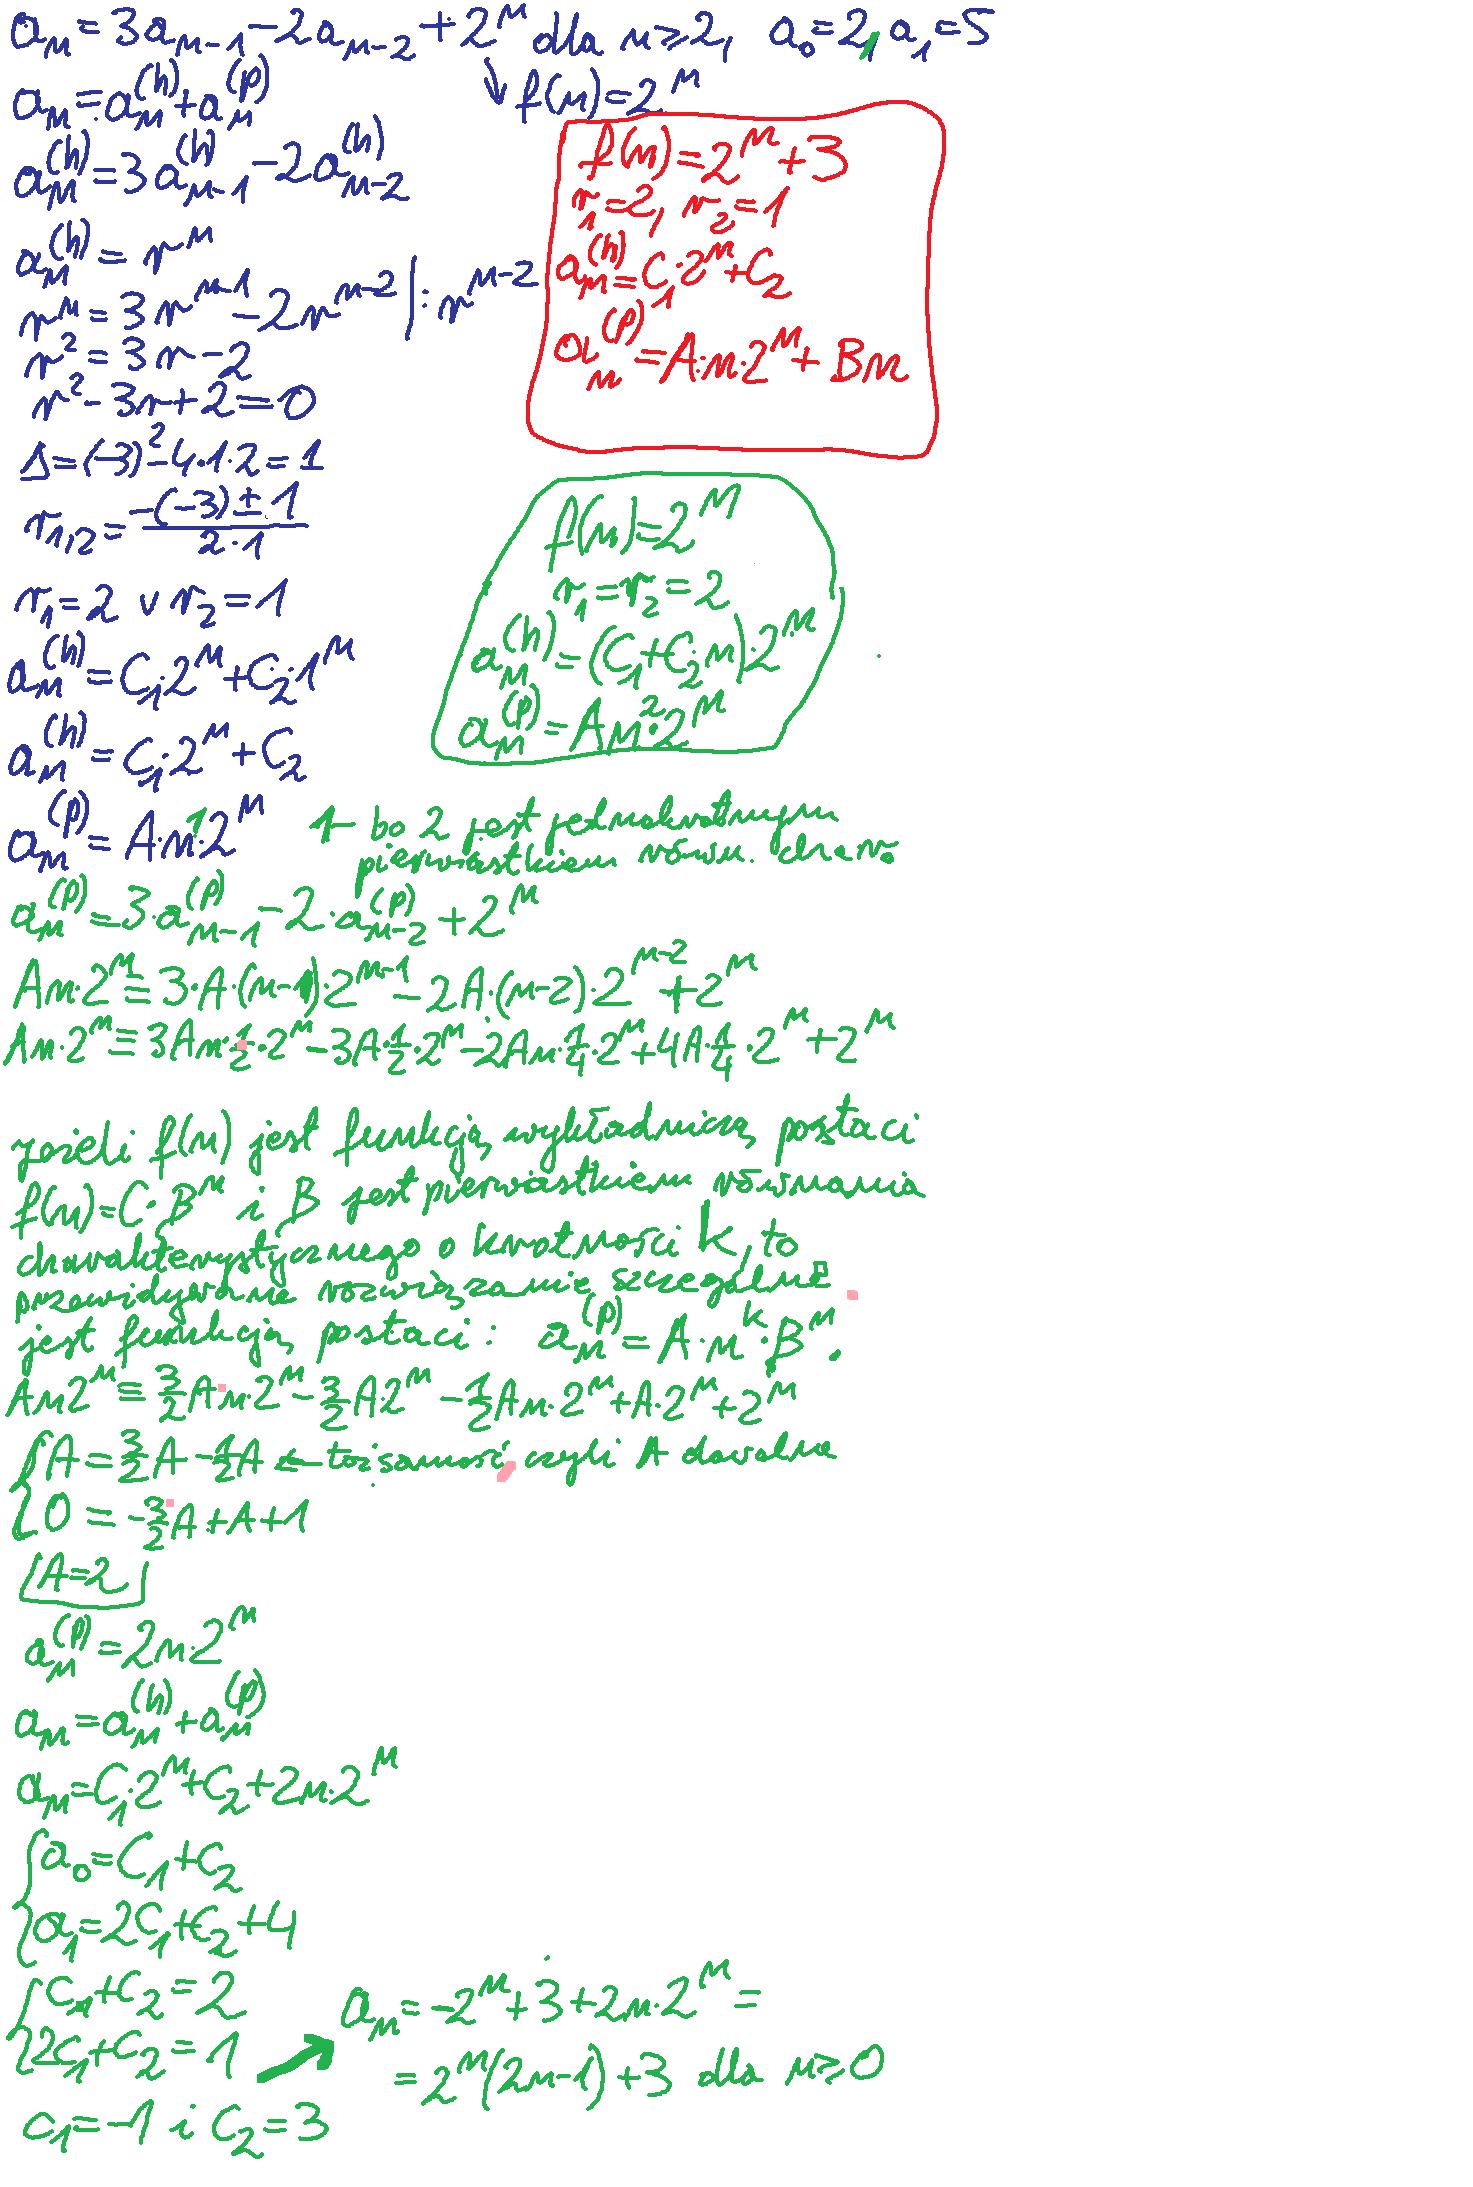 aₙ = 3aₙ₋₁ - 2aₙ₋₂ + 2ⁿ dla n ≥ 2, a₀ = 2, a₁ = 5
aₙ = aₙ^(h) + aₙ^(p)
↘ f(n) = 2ⁿ
aₙ^(h) = 3aₙ₋₁^(h) - 2aₙ₋₂^(h)
aₙ^(h) = rⁿ
rⁿ = 3rⁿ⁻¹ - 2rⁿ⁻² | : rⁿ⁻²
r² = 3r - 2
r² - 3r + 2 = 0
Δ = (-3)² - 4·1·2 = 1
r₁,₂ = (-(-3) ± 1)/(2·1)
r₁ = 2 v r₂ = 1
aₙ^(h) = C₁·2ⁿ + C₂·1ⁿ
aₙ^(h) = C₁·2ⁿ + C₂
f(n) = 2ⁿ + 3
r₁ = 2, r₂ = 1
aₙ^(h) = C₁·2ⁿ + C₂
aₙ^(p) = A·n·2ⁿ + Bn
f(n) = 2ⁿ
r₁ = r₂ = 2
aₙ^(h) = (C₁ + C₂·n)·2ⁿ
aₙ^(p) = An²·2ⁿ
aₙ^(p) = A·n¹·2ⁿ
1 - bo 2 jest jednokrotnym
pierwiastkiem równ. char.
aₙ^(p) = 3·aₙ₋₁^(p) - 2·aₙ₋₂^(p) + 2ⁿ
An·2ⁿ ≡ 3·A·(n-1)·2ⁿ⁻¹ - 2A·(n-2)·2ⁿ⁻² + 2ⁿ
An·2ⁿ ≡ 3An·1/2·2ⁿ - 3A·1/2·2ⁿ - 2An·1/4·2ⁿ + 4A·1/4·2ⁿ + 2ⁿ
Jeżeli f(n) jest funkcją wykładniczą postaci
f(n) = C·Bⁿ i B jest pierwiastkiem równania
charakterystycznego o krotności k, to
przewidywane rozwiązanie szczególne
jest funkcją postaci: aₙ^(p) = A·nᵏ·Bⁿ.
An2ⁿ ≡ 3/2An·2ⁿ - 3/2A2ⁿ - 1/2An·2ⁿ + A·2ⁿ + 2ⁿ
{ A = 3/2A - 1/2A ← tożsamość czyli A dowolne
{ 0 = -3/2A + A + 1
A = 2
aₙ^(p) = 2n·2ⁿ
aₙ = aₙ^(h) + aₙ^(p)
aₙ = C₁·2ⁿ + C₂ + 2n·2ⁿ
{ a₀ = C₁ + C₂
{ a₁ = 2C₁ + C₂ + 4
{ C₁ + C₂ = 2
{ 2C₁ + C₂ = 1
C₁ = -1 i C₂ = 3
aₙ = -2ⁿ + 3 + 2n·2ⁿ =
= 2ⁿ(2n-1) + 3 dla n ≥ 0